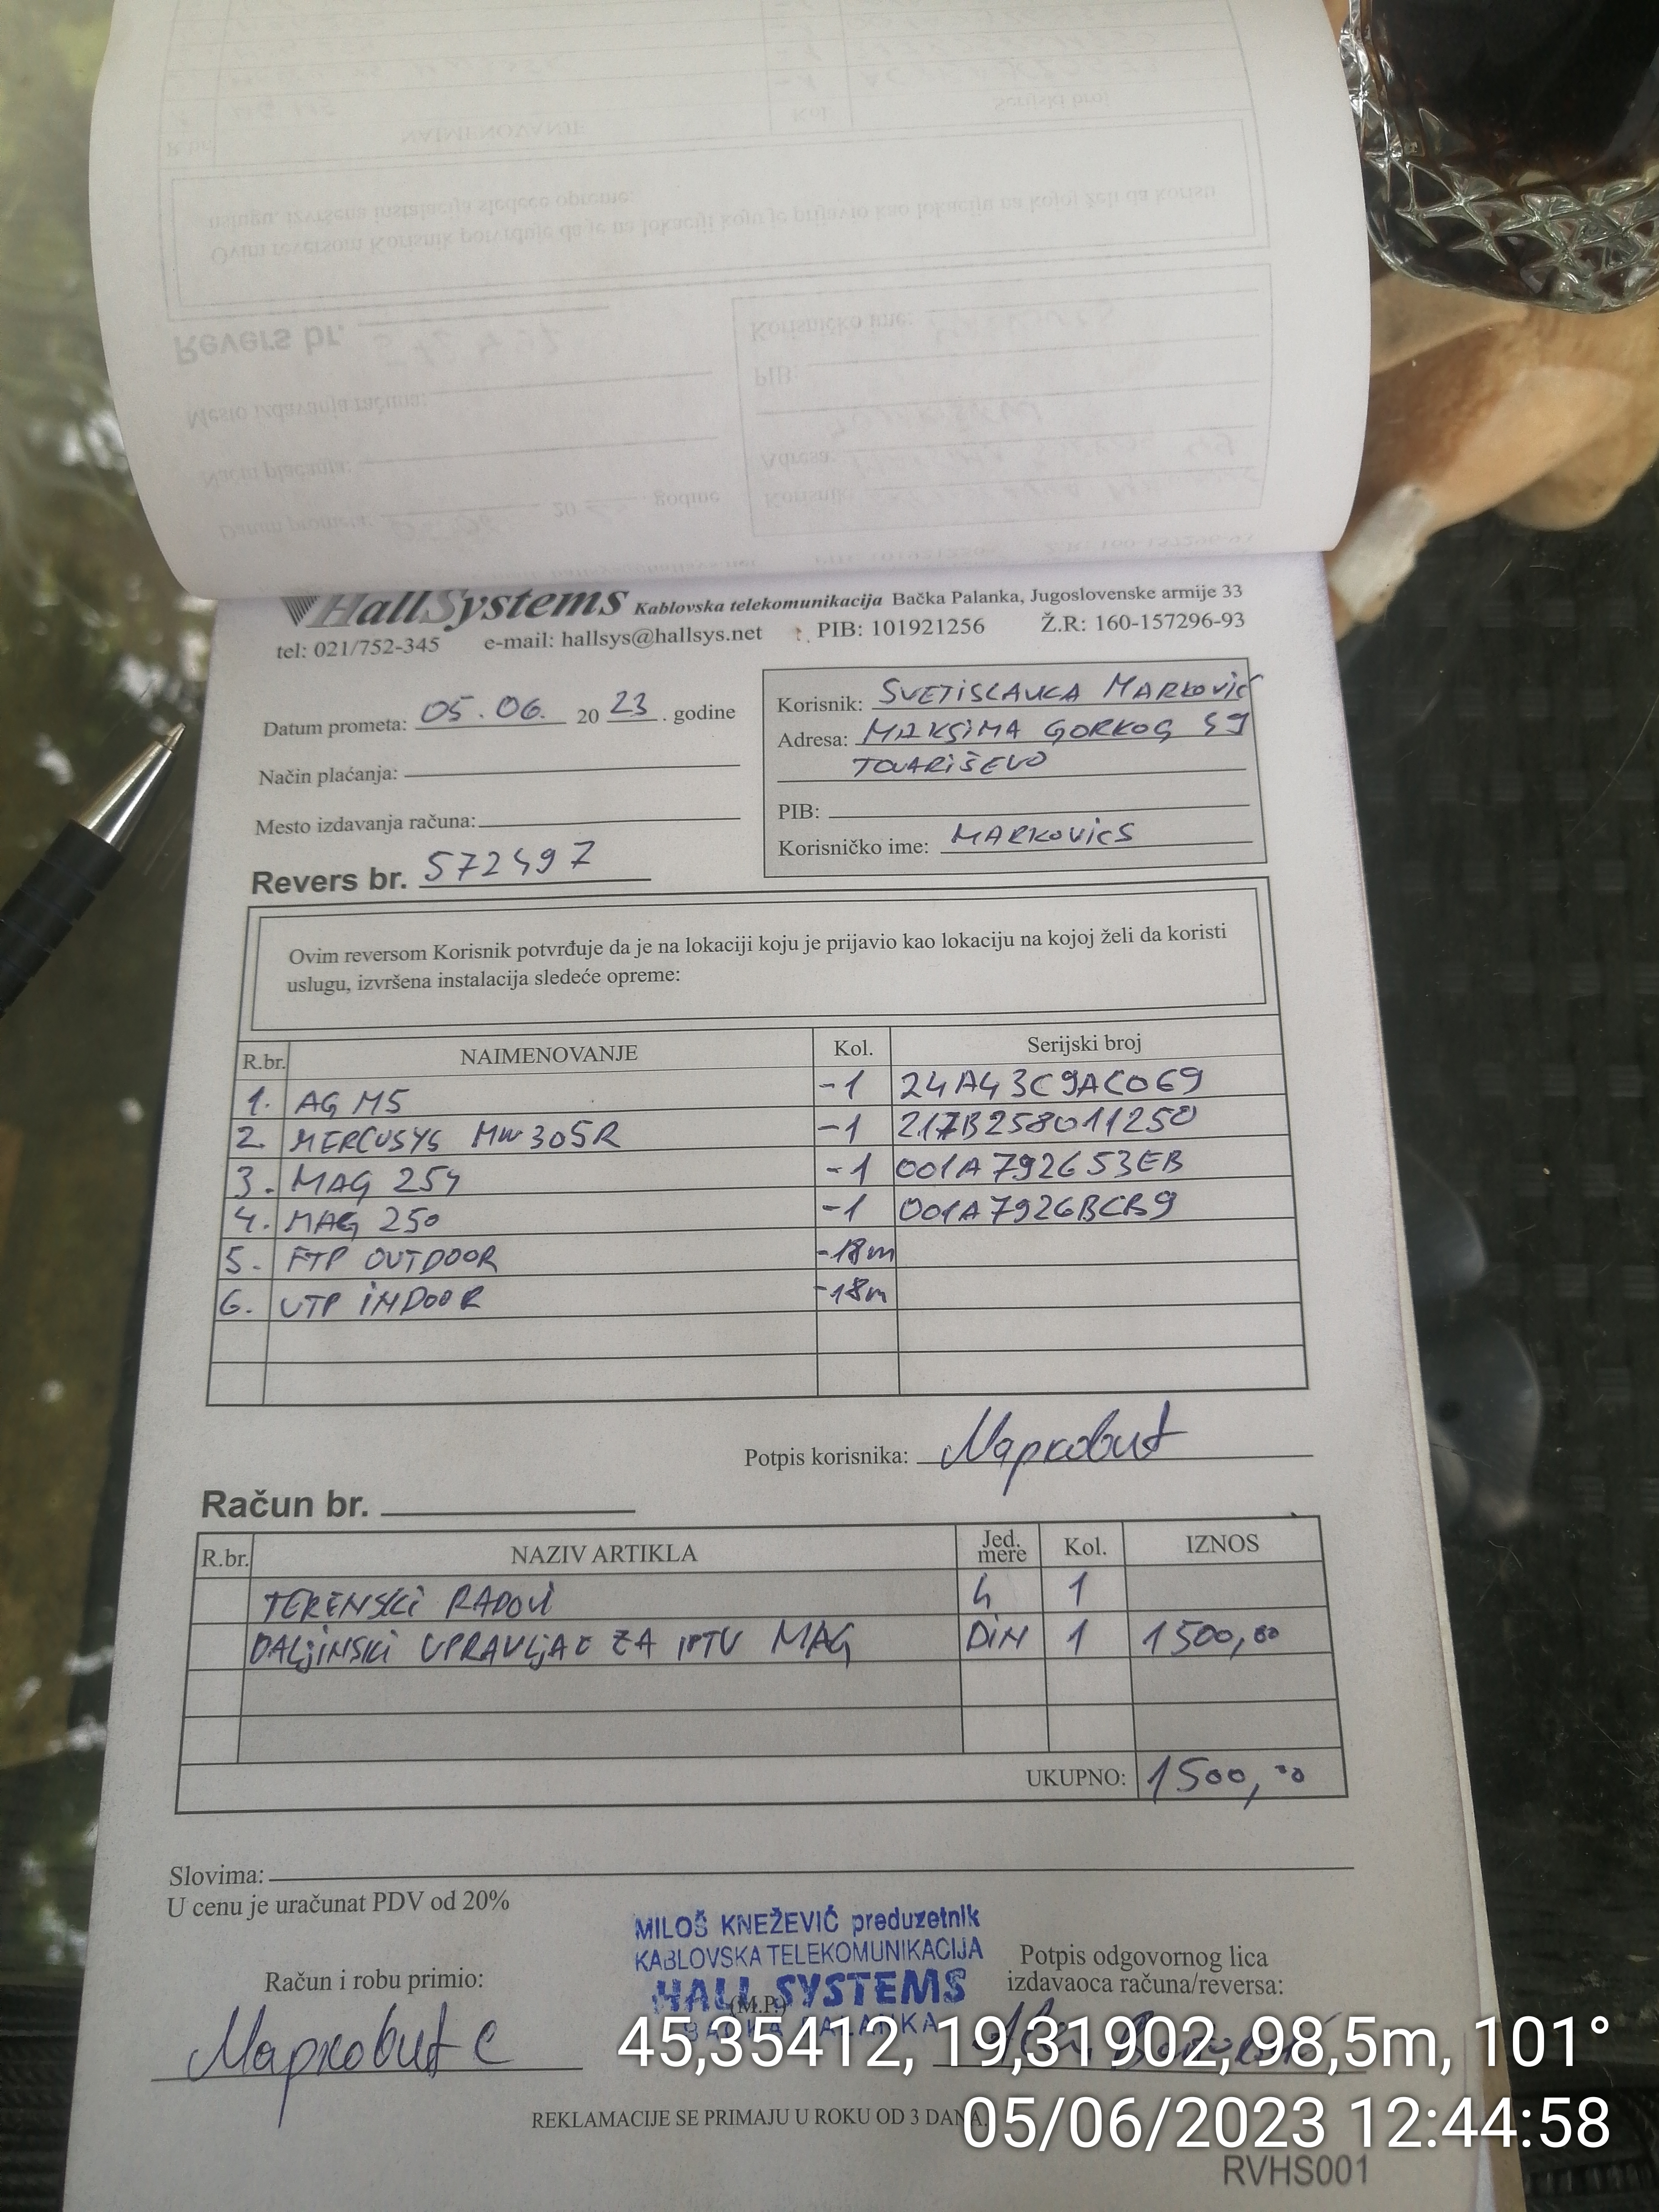 HallSystems Kablovska telekomunikacija Bačka Palanka, Jugoslovenske armije 33
tel: 021/752-345 e-mail: hallsys@hallsys.net PIB: 101921256 Ž.R: 160-157296-93
Datum prometa: 05.06. 20 23. godine
Način plaćanja:
Mesto izdavanja računa:
Revers br. 572497
Korisnik: SVETISLAVKA MARKOVIĆ
Adresa: MAKSIMA GORKOG 49
TOVARIŠEVO
PIB:
Korisničko ime: MARKOVICS
Ovim reversom Korisnik potvrđuje da je na lokaciji koju je prijavio kao lokaciju na kojoj želi da koristi
uslugu, izvršena instalacija sledeće opreme:
R.br. NAIMENOVANJE Kol. Serijski broj
1. AG M5 -1 24A43C9AC069
2. MERCUSYS MW305R -1 217B258011250
3. MAG 254 -1 001A792653EB
4. MAG 250 -1 001A7926BCB9
5. FTP OUTDOOR -18m
6. UTP INDOOR -18m
Potpis korisnika: Марковић
Račun br.
R.br. NAZIV ARTIKLA Jed. mere Kol. IZNOS
TERENSKI RADOVI h 1
DALJINSKI UPRAVLJAČ ZA IPTV MAG DIN 1 1500,00
UKUPNO: 1500,00
Slovima:
U cenu je uračunat PDV od 20%
MILOŠ KNEŽEVIĆ preduzetnik
KABLOVSKA TELEKOMUNIKACIJA
HALL SYSTEMS
(M.P.)
BAČKA PALANKA
Račun i robu primio:
Марковић С
Potpis odgovornog lica
izdavaoca računa/reversa:
45,35412, 19,31902, 98,5m, 101°
REKLAMACIJE SE PRIMAJU U ROKU OD 3 DANA.
05/06/2023 12:44:58
RVHS001